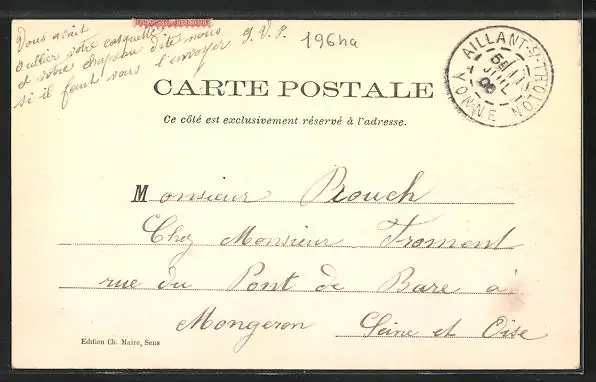 Vous avait
oublier votre casquette
et votre chapeau dite nous
si il faut vous l'envoyer S.V.P.
196ha
AILLANT-S-THOLON
YONNE
11
JUIL
CARTE POSTALE
Ce côté est exclusivement réservé à l'adresse.
Monsieur Prouch
Chez Monsieur Froment
rue du Pont de Bare à
Mongeron Seine et Oise
Edition Ch. Maire, Sens